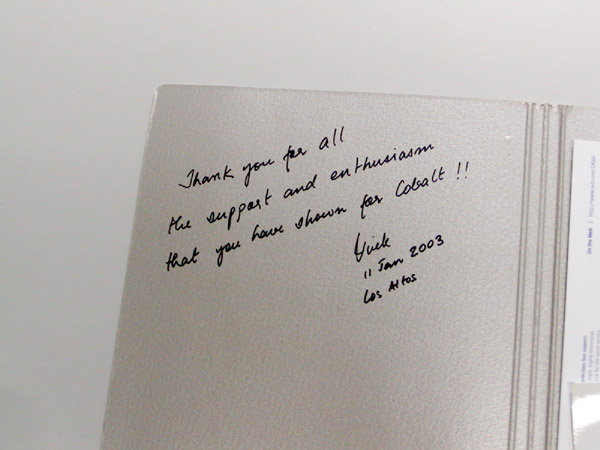 Thank you for all
the support and enthusiasm
that you have shown for Cobalt !!
Vivek
11 Jan 2003
Los Altos
On the Web